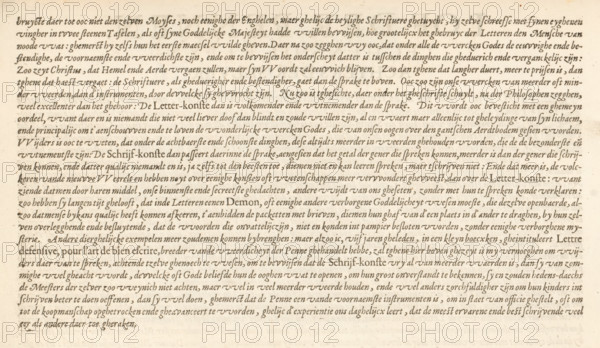 bruyckte daer toe ooc niet den zelven Moyses, noch eenighe der Enghelen, maer ghelijc de heylighe Schriftuere ghetuycht, hy zelve schreefse met synen eyghenen
vingher in twee steenen Tafelen, als oft syne Goddelijcke Majesteyt hadde willen bewijsen, hoe grootelijcx het ghebruyc der Letteren den Mensche van
noode was: ghemerct hy zelfs hun het eerste maeesel wilde gheven. Daer na zoo zegghen wy ooc, dat onder alle de wercken Godes de eeuwighe ende be-
stendighe, de voornaemste ende weerdichste zijn, ende om te bewijsen het onderscheyt datter is tusschen de dinghen die gheduerich ende verganckelijc zijn:
Zoo zeyt Christus, dat Hemel ende Aerde vergaen zullen, maer syn Woordt zal eeuwich blijven. Zoo dan tghene dat langher duert, meer te prijsen is, dan
tghene dat haest vergaet: de Schriftuere, als gheduerigher ende bestendigher, gaet dan de sprake te boven. Ooc zoo zijn onse wercken van meerder oft min-
der weerden, dan d'instrumenten, door dewelcke sy ghewrocht zijn. Nu zoo is tghesichte, daer onder het gheschrifte schuylt, na der Philosophen zegghen,
veel excellenter dan het ghehoor: De Letter-konste dan is volkomender ende uutnemender dan de sprake. Dit wordt ooc bevesticht met een ghemeyn
oordeel, want daer en is niemandt die niet veel liever doof dan blindt en zoude willen zijn, al en waert maer alleenlijc tot gheleydinghe van syn lichaem,
ende principalijc om t'aenschouwen ende te loven de wonderlijcke wercken Godes, die van onsen ooghen over den gantschen Aerdtbodem ghesien worden.
Wijders is ooc te weten, dat onder de achtbaerste ende schoonste dinghen, dese altijdts meerder in weerden ghehouden worden, die de de bezonderste en
uutnemenste zijn: De Schrijf-konste dan passeert daerinne de sprake, aenghesien dat het getal der gener die spreken konnen, meerder is dan der gener die schrij-
ven konnen, ende datter qualijc niemandt en is, ja zelfs tot den beesten toe, dienen niet en kan leeren spreken, maer tschrijven niet: Ende dat meer is, de volc-
keren vande nieuwe Werelt en hebben noyt over eenighe konsten oft wetenschappen meer verwondert gheweest, dan over de Letter-konste:
ziende datmen door haren middel, ons binnenste ende secreetste ghedachten, ander wijdt van ons ghesceten, zonder met hun te spreken konde verklaren:
zoo hebben sy langen tijt ghelooft, dat inde Letteren eenen Demon, oft eenighe andere verborgene Goddelijcheyt wesen moeste, die dezelve openbaerde, al-
zoo datmense bykans qualijc heeft konnen afkeeren, t'aanbidden de packetten met brieven, diemen hun gaf van d'een plaets in d'ander te draghen, by hun zel-
ven overlegghende ende besluytende, dat de woorden die onvattelijc zijn, niet en konden int pampier besloten worden, zonder eenighe verborghene my-
sterie. Andere dierghelijcke exempelen meer zoudemen konnen bybrenghen: maer alzoo ic, vijf jaren gheleden, in een kleyn boecxken, gheintituleert Lettre
defensive, pour l'art de bien escrire, breeder vande weerdicheyt der Penne ghehandelt hebbe, zal ghene hier boven ghezeyt is my vernoeghen om wij-
ders daer van te spreken, achtende tzelve ghenoech te wesen, om te bewijsen dat de Schrijf-konste vry al van meerder weerden is, dan sy van som-
mighe wel gheacht wordt, dewelcke oft Gods beliefde hun de ooghen wat te openen, om hun groot onverstandt te bekennen, sy en zouden hedens-daechs
de Meesters der zelver zoo weynich niet achten, maer wel in veel meerder weerde houden, ende veel anders zorchfuldigher zijn om hun kinders int
schrijven beter te doen oeffenen, dan sy wel doen, ghemerct dat de Penne een vande voornaemste instrumenten is, om in staet van officie ghestelt, oft om
tot de koopmanschap opghetrocken ende gheavanceert te worden, ghelijc d'experientie ons daghelijcx leert, dat de meeste ervarene ende best schrijvende veel
eer als andere daer toe gheraken.